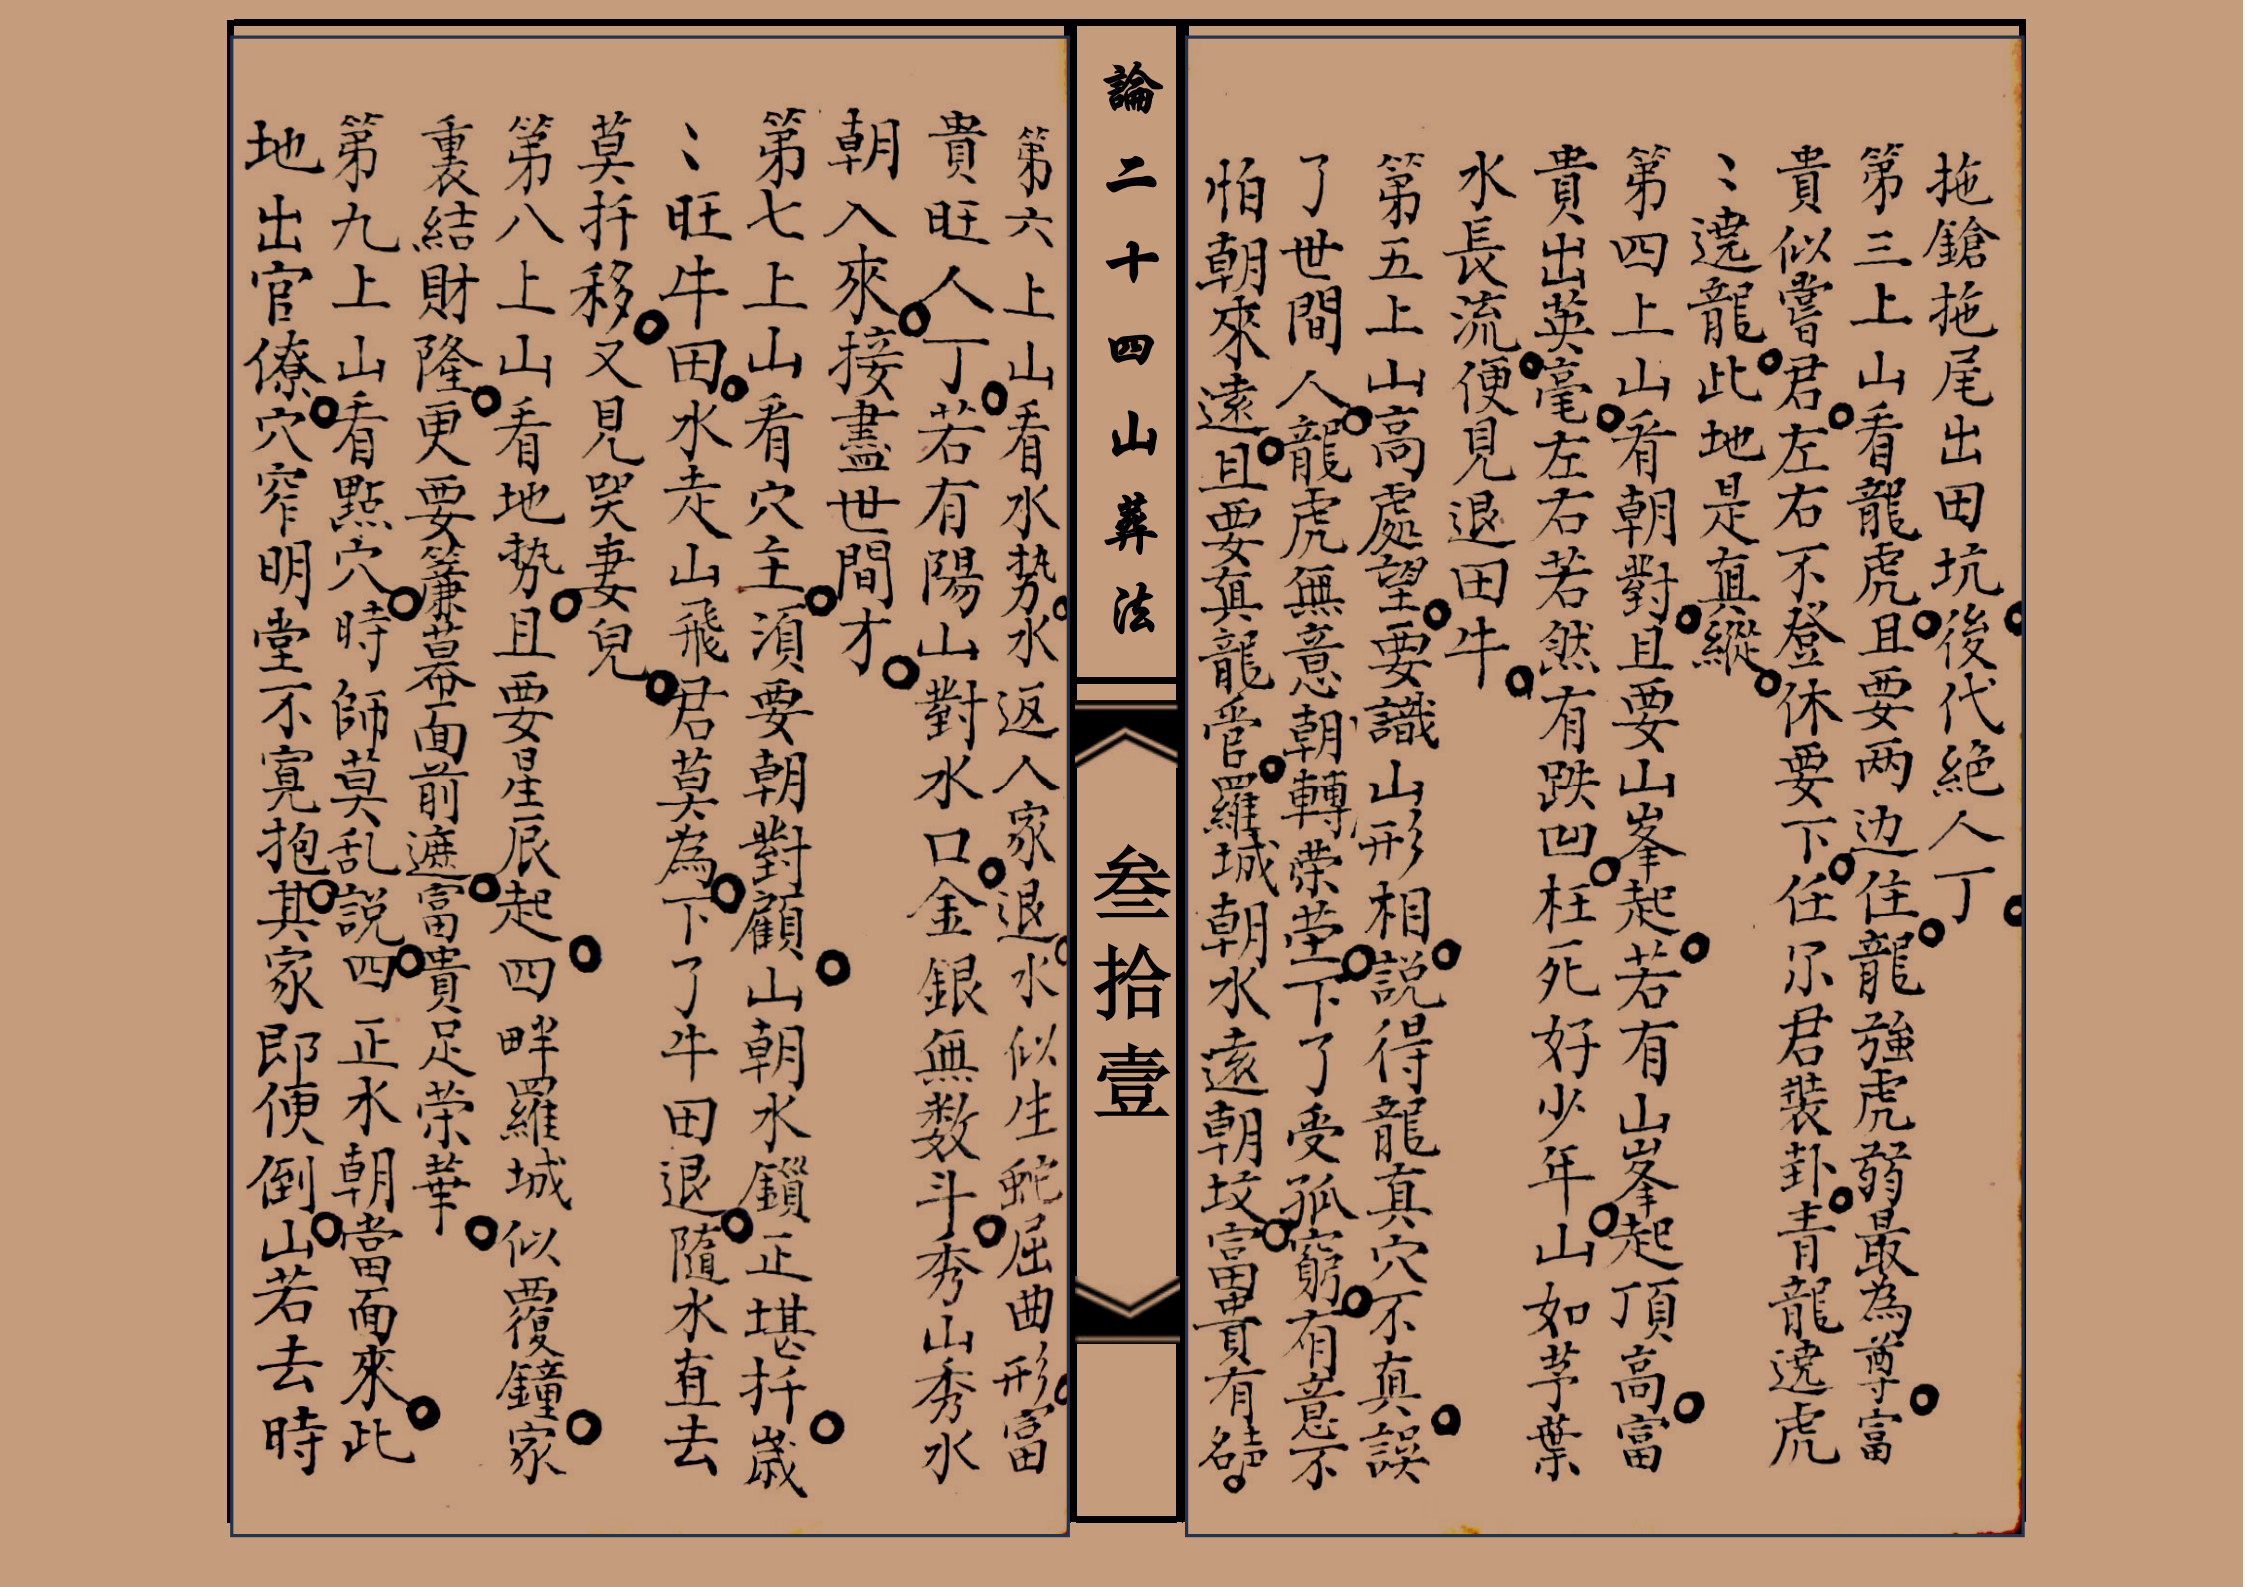 拖鎗拖尾出田坑後代絕人丁
第三上山看龍虎且要两边住龍強虎弱最為尊富
貴似嘗君左右不登休要下任尔君裝卦青龍遶虎
〻遶龍此地是真縱
第四上山看朝對且要山峯起若有山峯起頂高富
貴出英毫左右若然有跌凹枉死好少年山如芋葉
水長流便見退田牛
第五上山高處望要識山形相説得龍真穴不真誤
了世間人龍虎無意朝轉荣茔下了受孤窮有意不
怕朝來遠且要真龍受羅城朝水遠朝坟富貴有
論二十四山葬法
叁拾壹
第六上山看水势水返人家退水似生蛇屈曲形富
貴旺人丁若有陽山對水口金銀無数斗秀山秀水
朝入來接盡世間才
第七上山看穴主須要朝對顧山朝水鎖正堪扦歲
〻旺牛田水走山飛君莫為下了牛田退隨水直去
莫扦移又見哭妻兒
第八上山看地势且要星辰起四畔羅城似覆鐘家
重裏結財隆更要簾幕面前遮富貴足荣華
第九上山看點穴時師莫乱説四正水朝當面來此
地出官僚穴窄明堂不寛抱其家即便倒山若去時